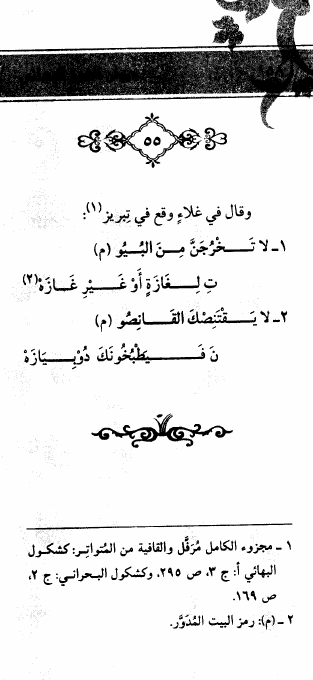 ٥٥
وقال في غلاءٍ وقع في تبريز(١):
١ـ لا تَـخْرُجَنَّ مِـنَ البُيُو (م)
تِ لِـغَازَةٍ أَوْ غَـيْرِ غَـازَهْ(٢)
٢ـ لا يَـقْتَنِصْكَ القَـانِصُو (م)
نَ فَـيَطْبُخُونَكَ دُوْبِـيَازَهْ
١ ـ مجزوء الكامل مُرَفَّل والقافية من المُتواتِر: كشكول
البهائي أ: ج ٣، ص ٢٩٥، وكشكول البحراني: ج ٢،
ص ١٦٩.
٢ ـ (م): رمز البيت المُدَوَّر.